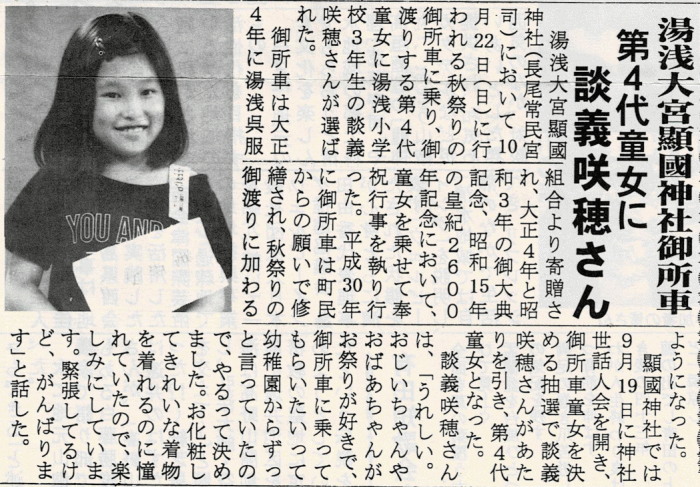 湯浅大宮顯國神社御所車
第4代童女に
談義咲穂さん
湯浅大宮顯國
神社(長尾常民宮
司)において10
月22日(日)に行
われる秋祭りの
御所車に乗り、御
渡りする第4代
童女に湯浅小学
校3年生の談義
咲穂さんが選ば
れた。
御所車は大正
4年に湯浅呉服
組合より寄贈さ
れ、大正4年と昭
和3年の御大典
記念、昭和15年
の皇紀2600
年記念において、
童女を乗せて奉
祝行事を執り行
った。平成30年
に御所車は町民
からの願いで修
繕され、秋祭りの
御渡りに加わる
ようになった。
顯國神社では
9月19日に神社
世話人会を開き、
御所車童女を決
める抽選で談義
咲穂さんがあた
りを引き、第4代
童女となった。
談義咲穂さん
は、「うれしい。
おじいちゃんや
おばあちゃんが
お祭りが好きで、
御所車に乗って
もらいたいって
幼稚園からずっ
と言っていたの
で、やるって決め
ました。お化粧し
てきれいな着物
を着れるのに憧
れていたので、楽
しみにしていま
す。緊張してるけ
ど、がんばりま
す」と話した。
YOU AND